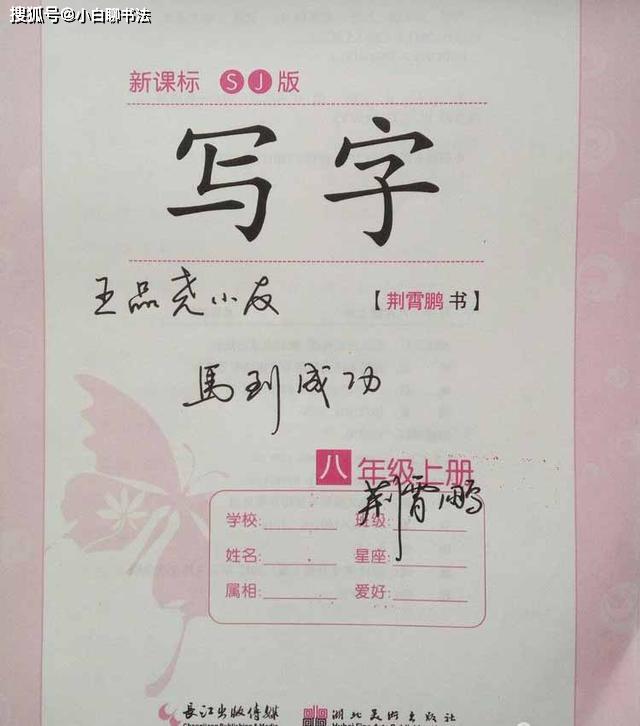 搜狐号@小白聊书法
新课标 SJ版
写字
王品尧小友
【荆霄鹏 书】
馬到成功
八年级上册
荆霄鹏
学校: 班级:
姓名: 星座:
属相: 爱好:
长江出版传媒 湖北美术出版社